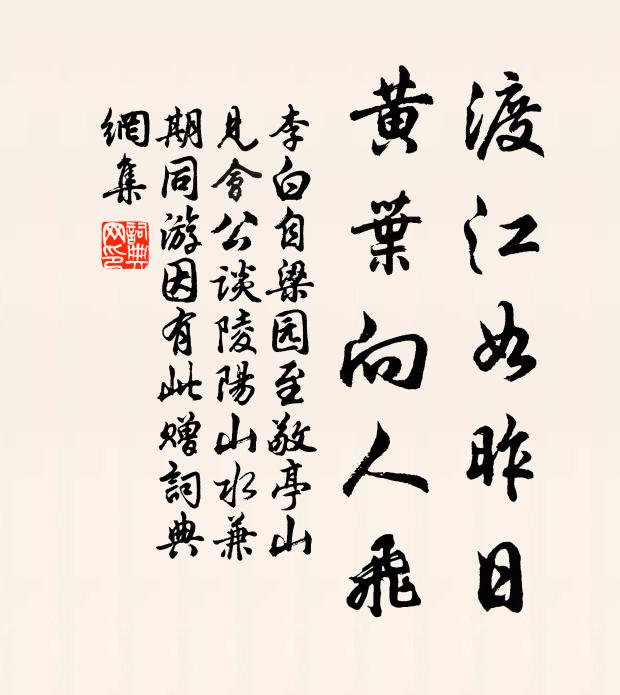 渡江如昨日
黄葉向人飛
李白自梁园至敬亭山
見會公談陵陽山水兼
期同游因有此贈詞典
網集
詞典
网印